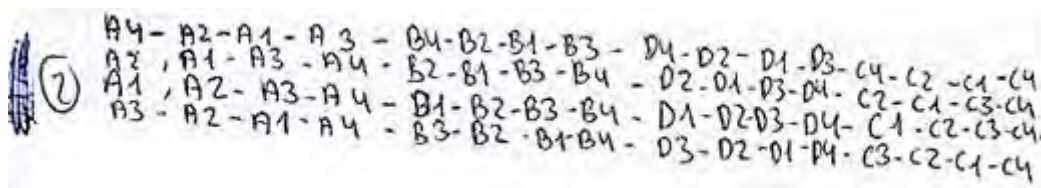 ② A4 - A2 - A1 - A3 - B4 - B2 - B1 - B3 - D4 - D2 - D1 - D3 - C4 - C2 - C1 - C4
A2 , A1 - A3 - A4 - B2 - B1 - B3 - B4 - D2 - D1 - D3 - D4 - C2 - C1 - C3 - C4
A1 , A2 - A3 - A4 - B1 - B2 - B3 - B4 - D1 - D2 - D3 - D4 - C1 - C2 - C3 - C4.
A3 - A2 - A1 - A4 - B3 - B2 - B1 - B4 - D3 - D2 - D1 - D4 - C3 - C2 - C1 - C4